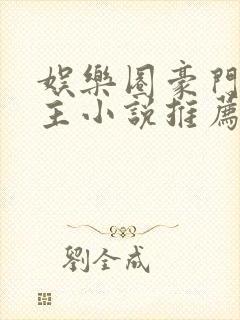 娛樂圈豪門
主小說推薦
劉全成